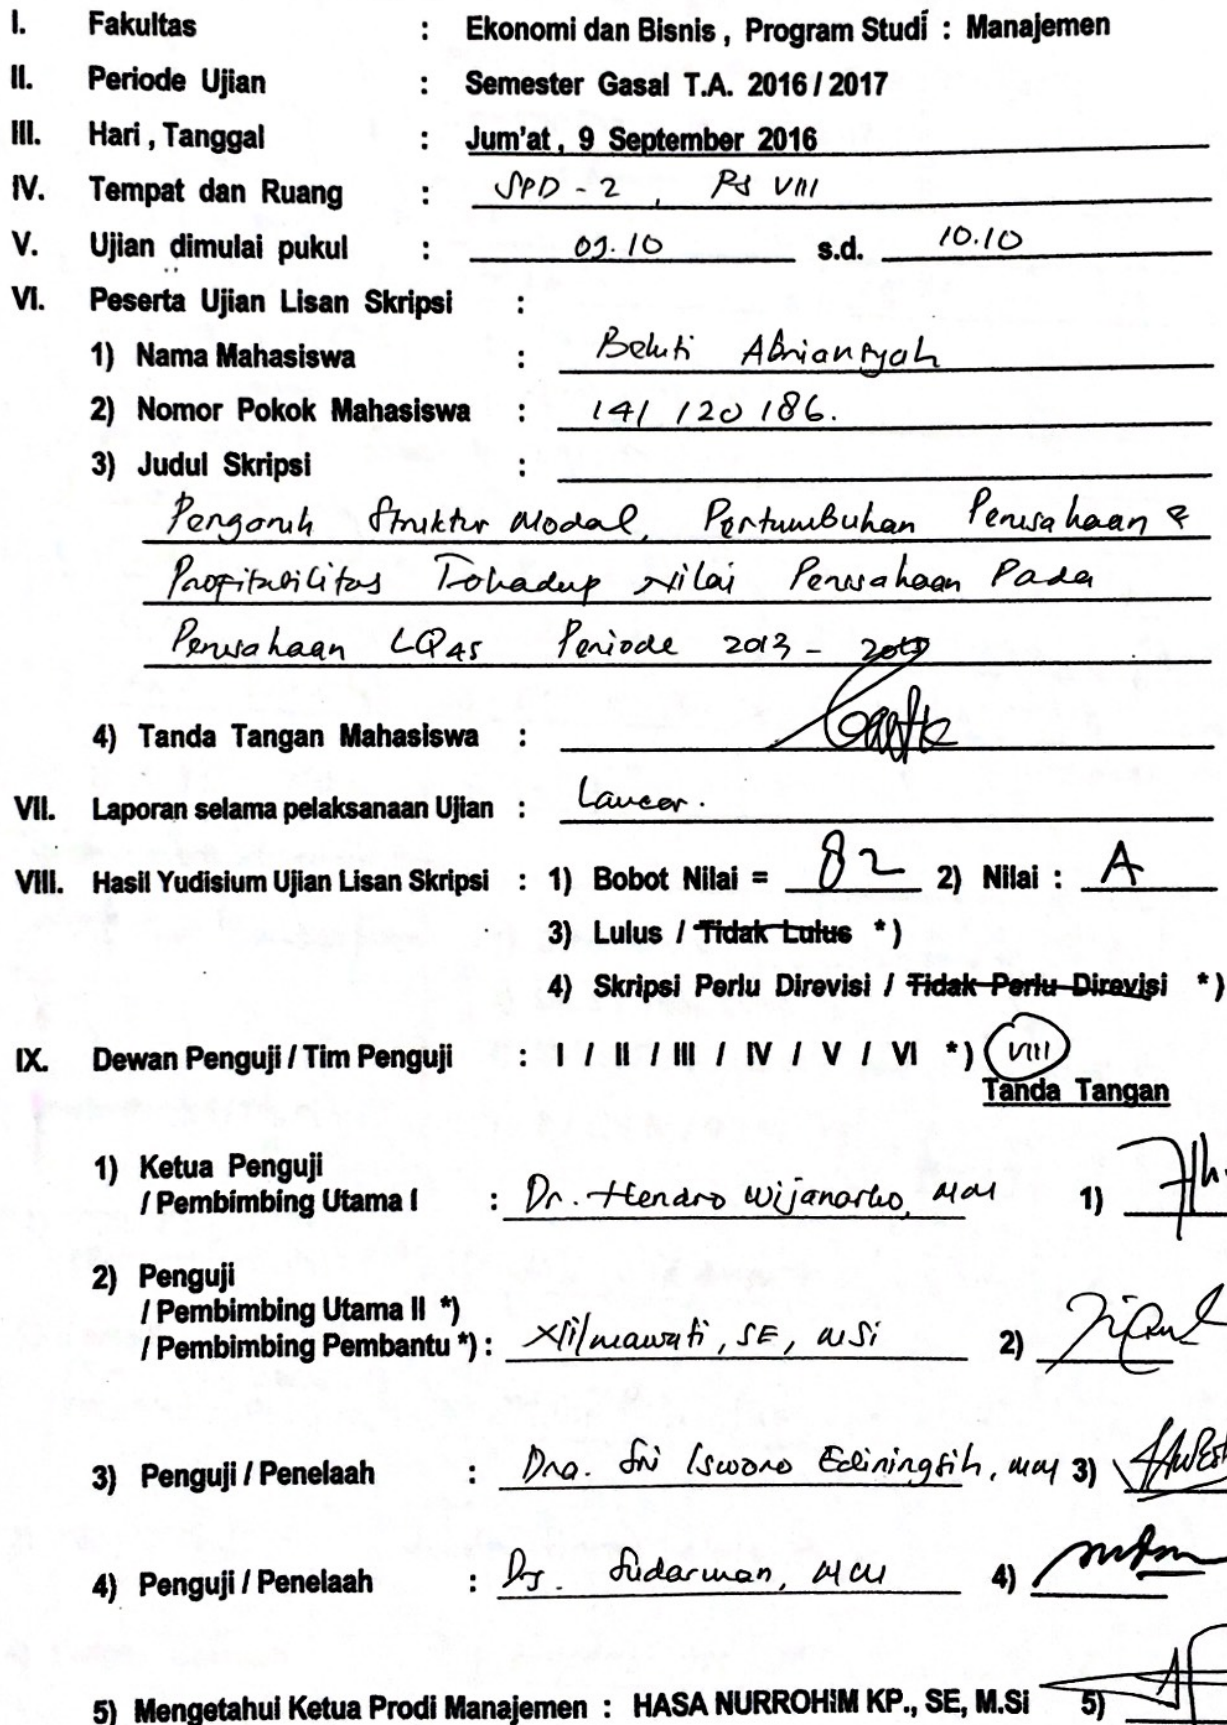 I. Fakultas : Ekonomi dan Bisnis , Program Studi : Manajemen
II. Periode Ujian : Semester Gasal T.A. 2016 / 2017
III. Hari , Tanggal : Jum'at , 9 September 2016
IV. Tempat dan Ruang : SPD - 2 , PS VIII
V. Ujian dimulai pukul : 09.10 s.d. 10.10
VI. Peserta Ujian Lisan Skripsi :
1) Nama Mahasiswa : Bekti Abriansyah
2) Nomor Pokok Mahasiswa : 141 120 186.
3) Judul Skripsi :
Pengaruh Struktur Modal, Pertumbuhan Perusahaan &
Profitabilitas Terhadap Nilai Perusahaan Pada
Perusahaan LQ45 Periode 2013 - 2015
4) Tanda Tangan Mahasiswa :
VII. Laporan selama pelaksanaan Ujian : Lancar.
VIII. Hasil Yudisium Ujian Lisan Skripsi : 1) Bobot Nilai = 82 2) Nilai : A
3) Lulus / Tidak Lulus * )
4) Skripsi Perlu Direvisi / Tidak Perlu Direvisi * )
IX. Dewan Penguji / Tim Penguji : I / II / III / IV / V / VI * ) VIII
Tanda Tangan
1) Ketua Penguji
/ Pembimbing Utama I : Dr. Hendro Wijanarko, MM 1)
2) Penguji
/ Pembimbing Utama II *)
/ Pembimbing Pembantu *) : Nilmawati, SE, MSi 2)
3) Penguji / Penelaah : Dra. Sri Isworo Ediningsih, MM 3)
4) Penguji / Penelaah : Drs. Sudarman, MM 4)
5) Mengetahui Ketua Prodi Manajemen : HASA NURROHIM KP., SE, M.Si 5)